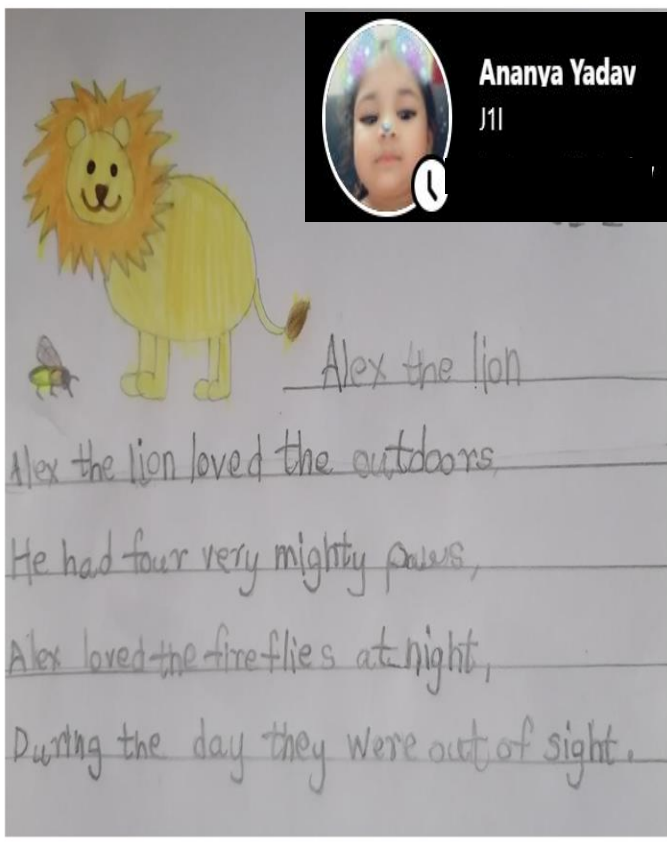 Ananya Yadav
J1I
Alex the lion
Alex the lion loved the outdoors,
He had four very mighty paws,
Alex loved the fireflies at night,
During the day they were out of sight.